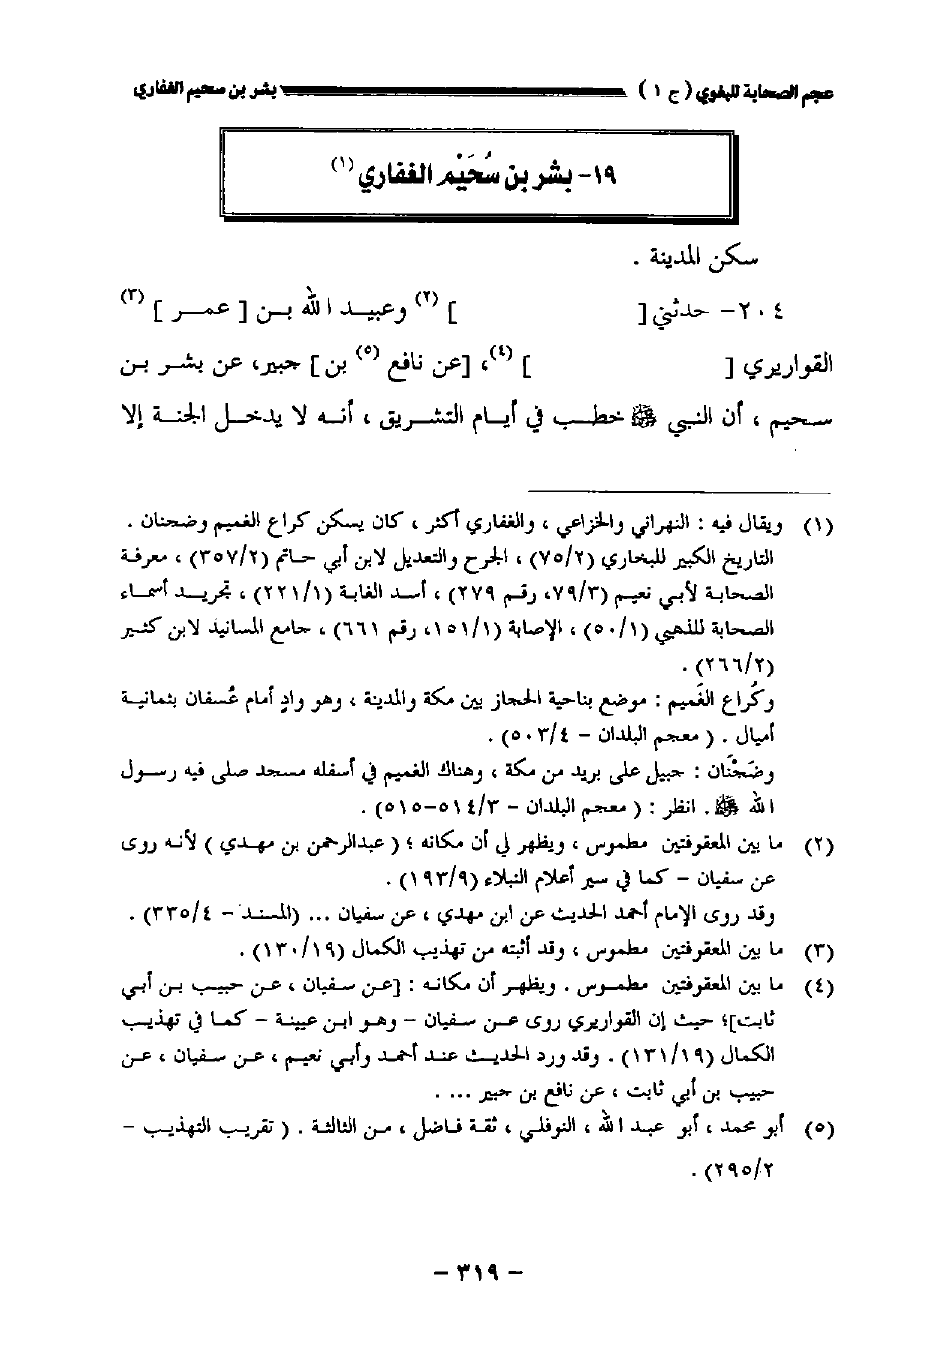 عجم الصحابة للبغوي ( ج ١ ) بشر بن سحيم الغفاري
١٩- بشر بن سُحَيْم الغفاري (١)
سكن المدينة .
٢٠٤- حدثني [ ] (٢) وعبيد الله بن [ عمر ] (٣)
القواريري [ ] (٤)، [عن نافع (٥) بن] جبير، عن بشر بن
سحيم ، أن النبي ﷺ خطب في أيام التشريق ، أنه لا يدخل الجنة إلا
(١) ويقال فيه : النهراني والخزاعي ، والغفاري أكثر ، كان يسكن كراع الغميم وضحنان .
التاريخ الكبير للبخاري (٧٥/٢) ، الجرح والتعديل لابن أبي حاتم (٣٥٧/٢) ، معرفة
الصحابة لأبي نعيم (٧٩/٣، رقم ٢٧٩) ، أسد الغابة (٢٢١/١) ، تجريد أسماء
الصحابة للذهبي (٥٠/١) ، الإصابة (١٥١/١، رقم ٦٦١) ، جامع المسانيد لابن كثير
(٢٦٦/٢) .
وكُراع الغَميم : موضع بناحية الحجاز بين مكة والمدينة ، وهو وادٍ أمام عُسفان بثمانية
أميال . ( معجم البلدان - ٥٠٣/٤) .
وضَجْنَان : جبيل على بريد من مكة ، وهناك الغميم في أسفله مسجد صلى فيه رسول
الله ﷺ . انظر : ( معجم البلدان - ٥١٤/٣-٥١٥) .
(٢) ما بين المعقوفتين مطموس ، ويظهر لي أن مكانه ؛ ( عبدالرحمن بن مهدي ) لأنه روى
عن سفيان - كما في سير أعلام النبلاء (١٩٣/٩) .
وقد روى الإمام أحمد الحديث عن ابن مهدي ، عن سفيان ... (المسند - ٣٣٥/٤) .
(٣) ما بين المعقوفتين مطموس ، وقد أثبته من تهذيب الكمال (١٣٠/١٩) .
(٤) ما بين المعقوفتين مطموس . ويظهر أن مكانه : [عن سفيان ، عن حبيب بن أبي
ثابت]؛ حيث إن القواريري روى عن سفيان - وهو ابن عيينة - كما في تهذيب
الكمال (١٣١/١٩) . وقد ورد الحديث عند أحمد وأبي نعيم ، عن سفيان ، عن
حبيب بن أبي ثابت ، عن نافع بن جبير ... .
(٥) أبو محمد ، أبو عبد الله ، النوفلي ، ثقة فاضل ، من الثالثة . ( تقريب التهذيب -
٢٩٥/٢) .
- ٣١٩ -